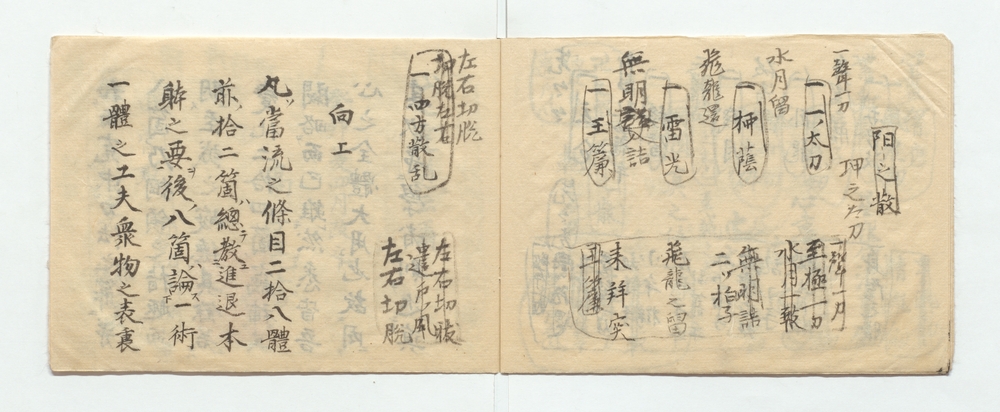 阳之散
押之太刀
一聲一刀
一一ノ太刀
水月留
一柳蔭
飛龍還
一雷光
無明詰
一玉簾
一聲一刀
至極一刀
水月一報
無明詰
二ツ拍子
飛龍之留
左右切脱
一四方散乱
左右切
遠戸風
左右切脱
向上
凡ソ當流之條目二拾八體
前拾二箇ハ總テ教ユ進退ノ本
後八箇ハ論ス一術
一體之工夫衆物之表裏